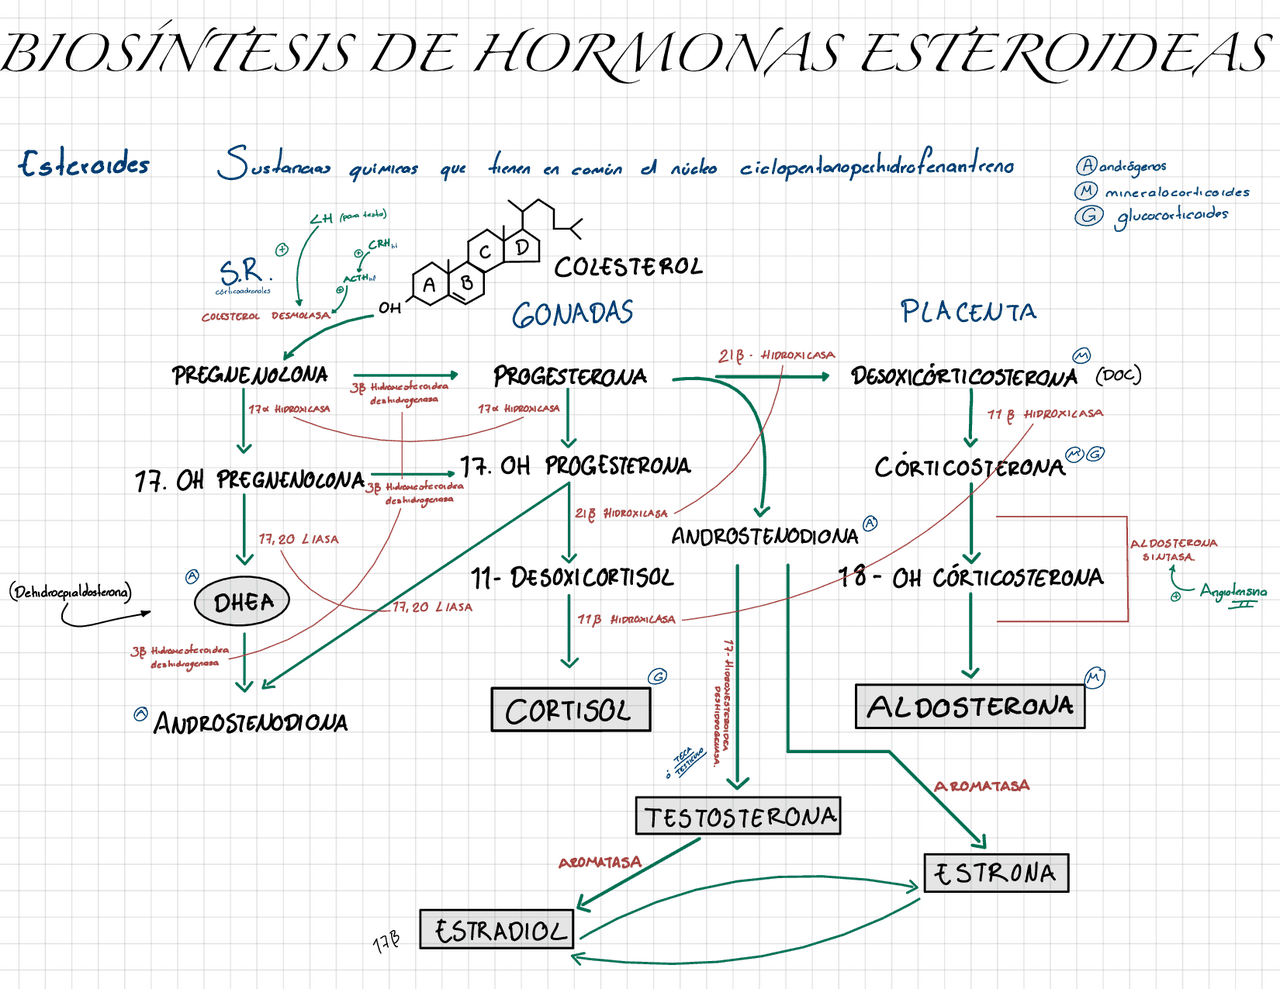 BIOSÍNTESIS DE HORMONAS ESTEROIDEAS
Esteroides
Sustancias químicas que tienen en común el núcleo ciclopentanoperhidrofenantreno
A andrógenos
M mineralocorticoides
G glucocorticoides
LH (para testo)
+
CRH
+
ACTH
+
S.R.
corticoadrenales
COLESTEROL DESMOLASA
A
B
C
D
OH
COLESTEROL
GONADAS
PLACENTA
PREGNENOLONA
3β Hidroxiesteroidea
deshidrogenasa
PROGESTERONA
21β - HIDROXICASA
DESOXICÓRTICOSTERONA (DOC)
M
17α HIDROXICASA
17α HIDROXICASA
11 β HIDROXICASA
17. OH PREGNENOLONA
3β Hidroxiesteroidea
deshidrogenasa
17. OH PROGESTERONA
CÓRTICOSTERONA
M G
17, 20 LIASA
21β HIDROXICASA
ANDROSTENODIONA
A
ALDOSTERONA
SINTASA
+
Angiotensina
II
(Dehidroepialdosterona)
A
DHEA
17, 20 LIASA
11- DESOXICORTISOL
18 - OH CÓRTICOSTERONA
11β HIDROXICASA
3β Hidroxiesteroidea
deshidrogenasa
A
ANDROSTENODIONA
CORTISOL
G
17- HIDROXIESTEROIDEA
DESHIDROGENASA.
ALDOSTERONA
M
TECA
ó TESTÍCULO
TESTOSTERONA
AROMATASA
AROMATASA
ESTRONA
17β
ESTRADIOL